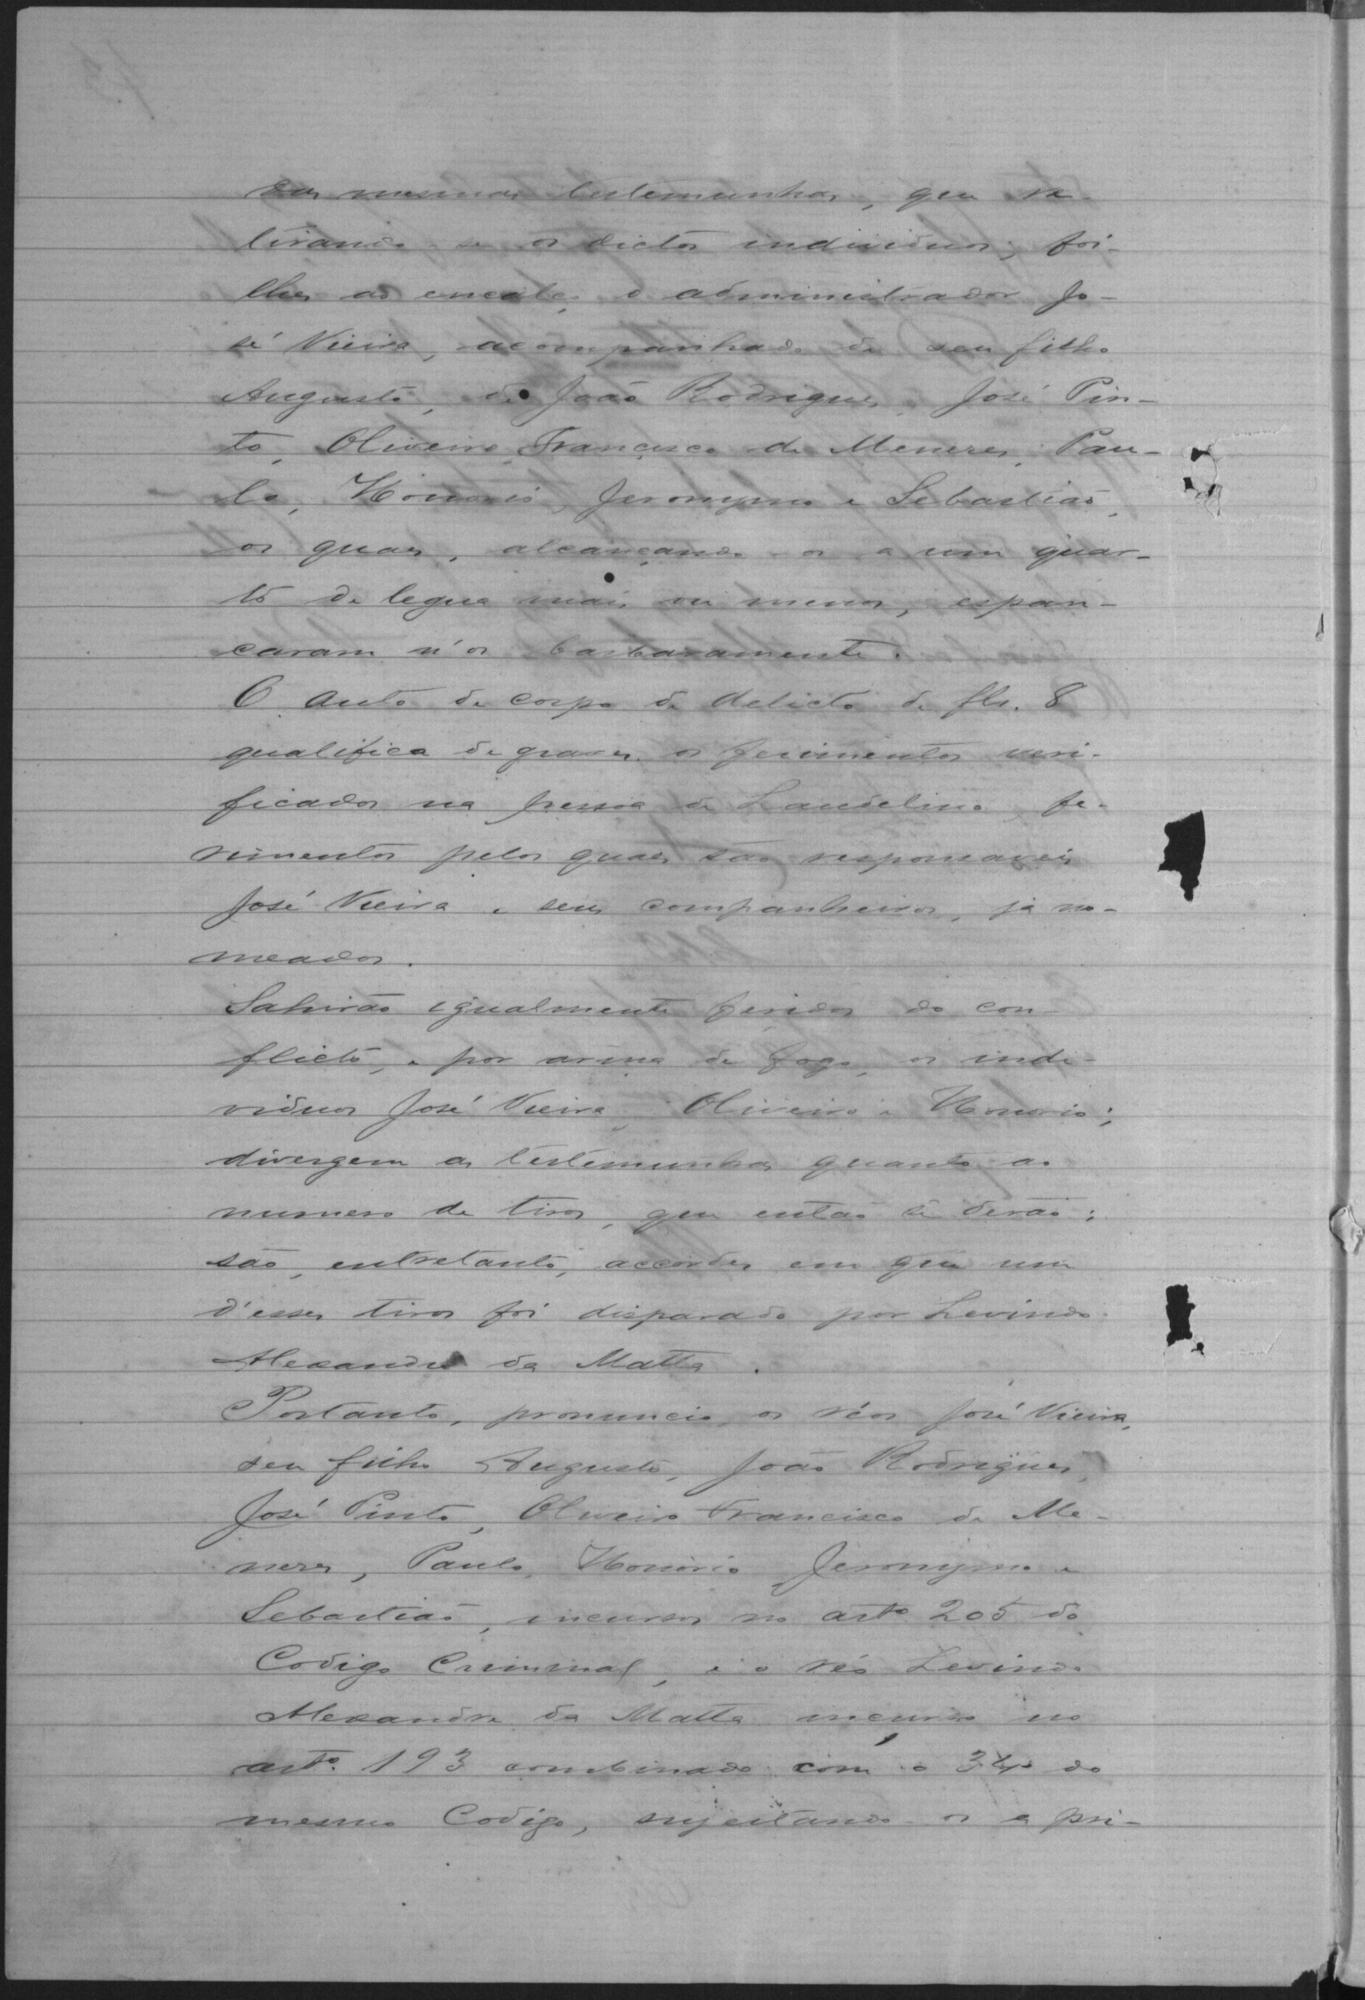 das mesmas testemunhas, que re-
tirando-se os dictos individuos, foi-
lhes ao encalço o administrador Jo-
sé Vieira, acompanhado de seu filho
Augusto, de João Rodrigues, José Pin-
to, Oliveiro Francisco de Menezes, Pau-
lo, Honorio, Jeronymo e Sebastião,
os quaes, alcançando-os a um quar-
to de legua mais ou menos, espan-
caram n'os barbaramente.
O auto de corpo de delicto de fls. 8
qualifica de graves os ferimentos veri-
ficados na pessoa de Laudelino, fe-
rimentos pelos quaes são responsaveis
José Vieira e seus companheiros, já no-
meados.
Sahirão igualmente feridos do con-
flicto, e por arma de fogo, os indi-
viduos José Vieira, Oliveiro e Honorio;
divergem as testemunhas quanto ao
numero de tiros, que então se derão;
são, entretanto, accordes em que um
d'esses tiros foi disparado por Levindo
Alexandre da Matta.
Portanto, pronuncio os réos José Vieira,
seu filho Augusto, João Rodrigues,
José Pinto, Oliveiro Francisco de Me-
nezes, Paulo, Honorio, Jeronymo e
Sebastião, incursos no artº 205 do
Codigo Criminal, e o réo Levindo
Alexandre da Matta incurso no
artº 193 combinado com o 34 do
mesmo Codigo, sujeitando-os a pri-